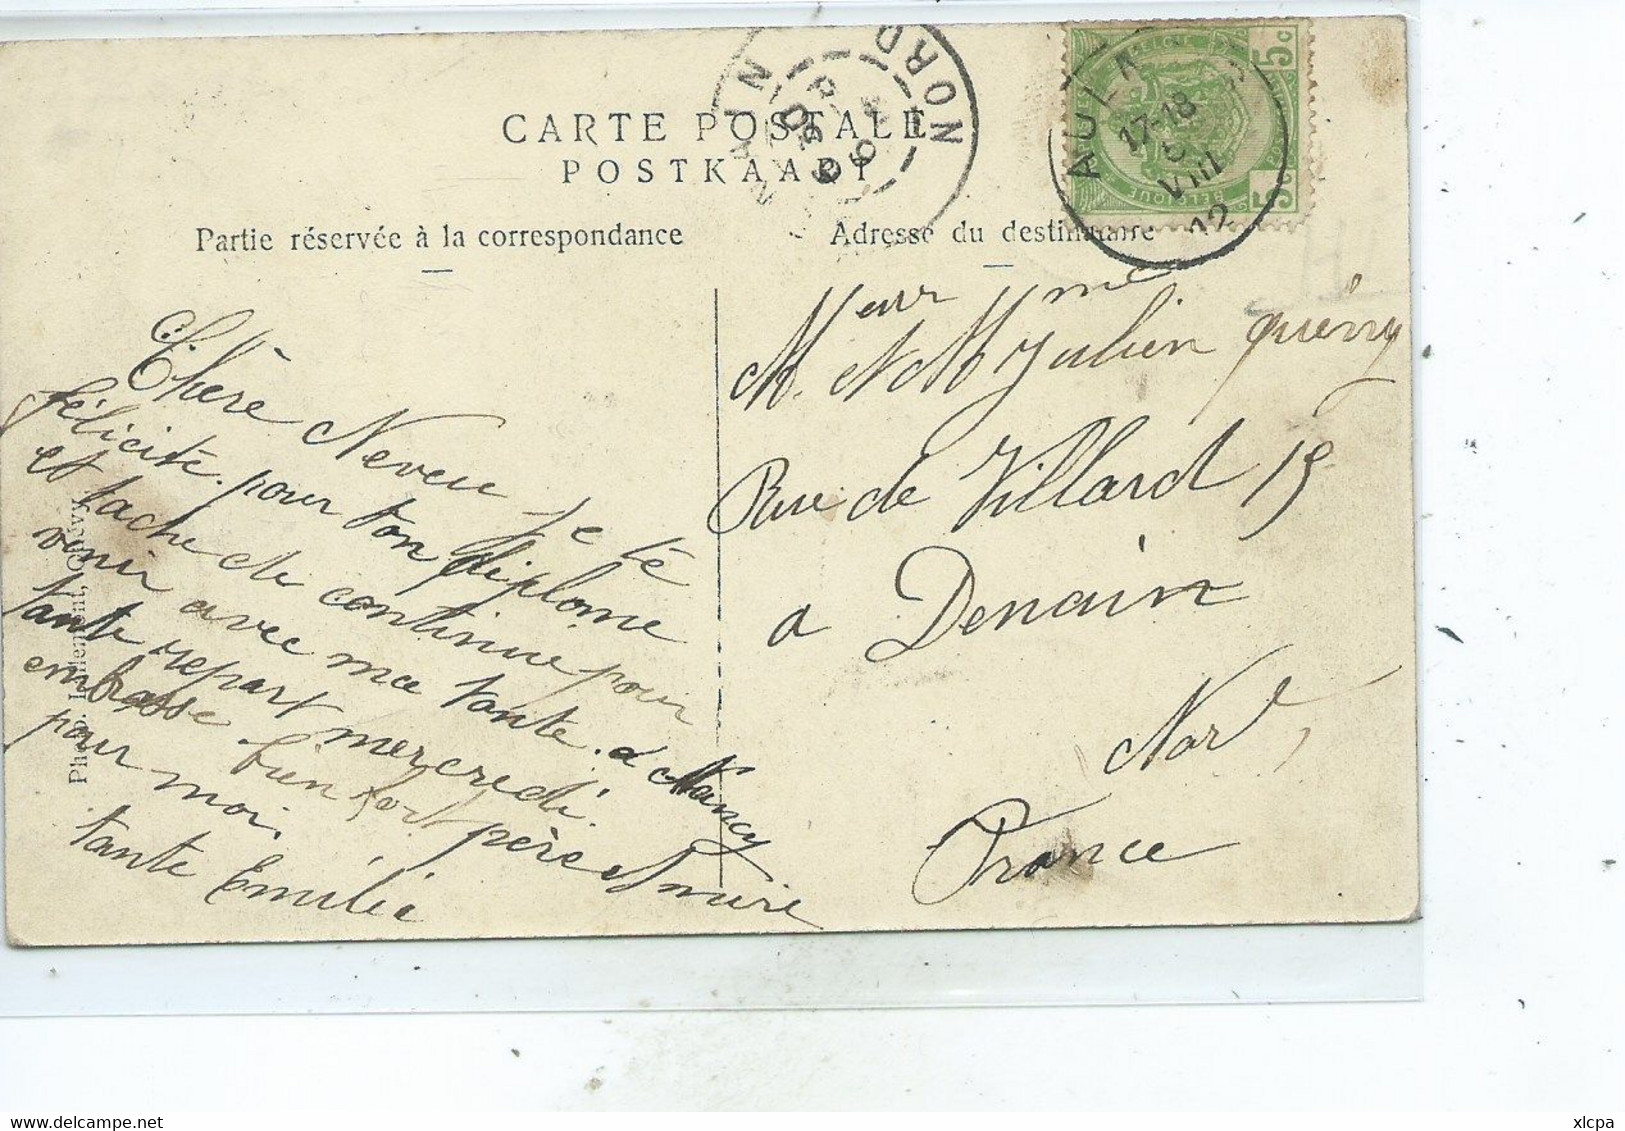 CARTE POSTALE
POSTKAART
Partie réservée à la correspondance
Adresse du destinataire
NORD
AULN
17-18
VIII
12
5c
5c
BELGIQUE
Chère Neveu Je te
félicite pour ton diplome
et tache de continue pour
venir avec ma tante. a Nancy
tante repart mercredi.
embrasse bien fort père et mère
pour moi.
tante Emilie
Phot. Quévy
Meur Mme
M. et M Julien quiévy
Rue de Villard 15
a Denain
Nord,
France
xlcpa